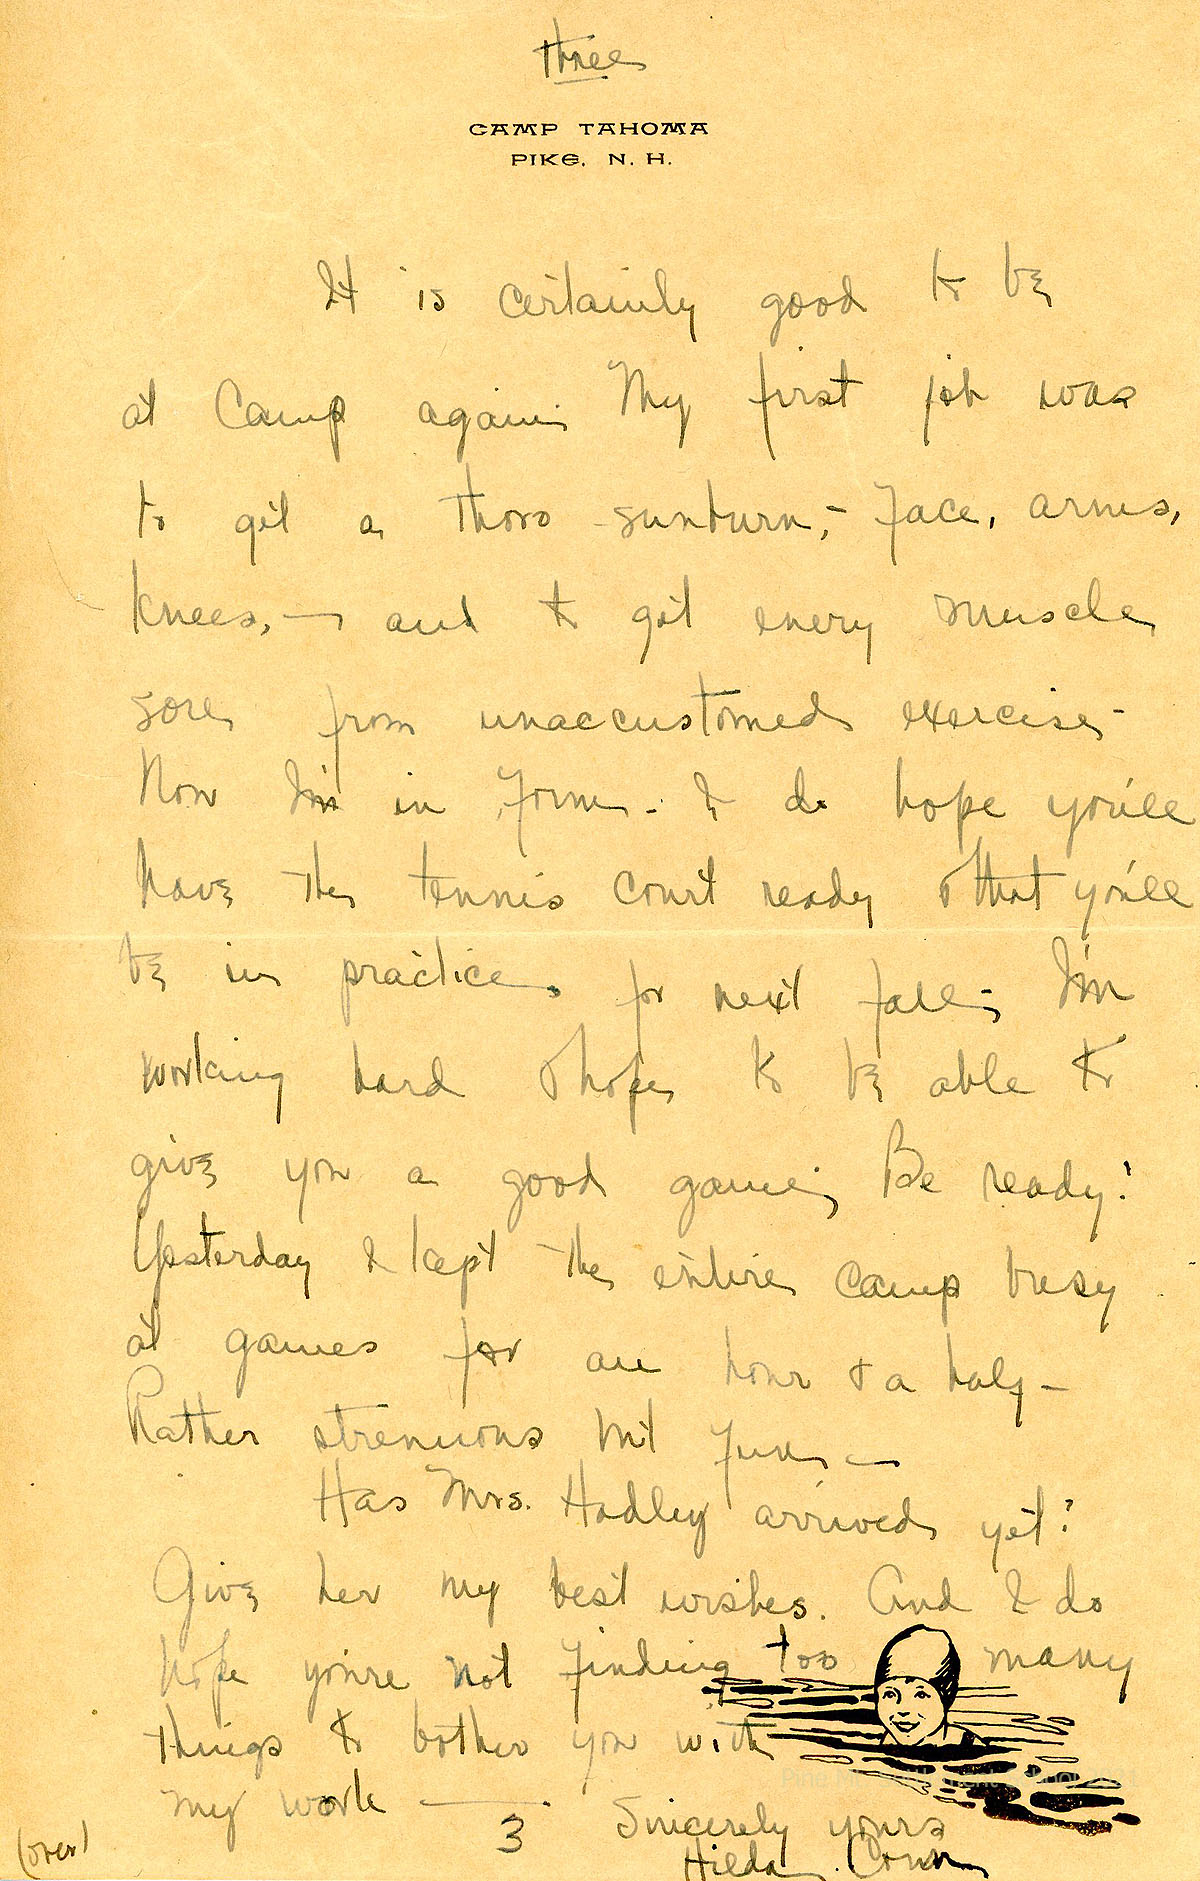 three
CAMP TAHOMA
PIKE, N. H.
It is certainly good to be
at Camp again. My first job was
to get a thoro sunburn,- face, arms,
knees, — and to get every muscle
sore from unaccustomed exercise -
Now I'm in form - . I do hope you'll
have the tennis court ready & that you'll
be in practice, for next fall; I'm
working hard & hope to be able to
give you a good game; Be ready!
Yesterday I kept the entire camp busy
at games for an hour & a half -
Rather strenuous but fun —
Has Mrs. Hadley arrived yet?
Give her my best wishes. And I do
hope you're not finding too many
things to bother you with
my work —
3 Sincerely yours
(over) Hilda